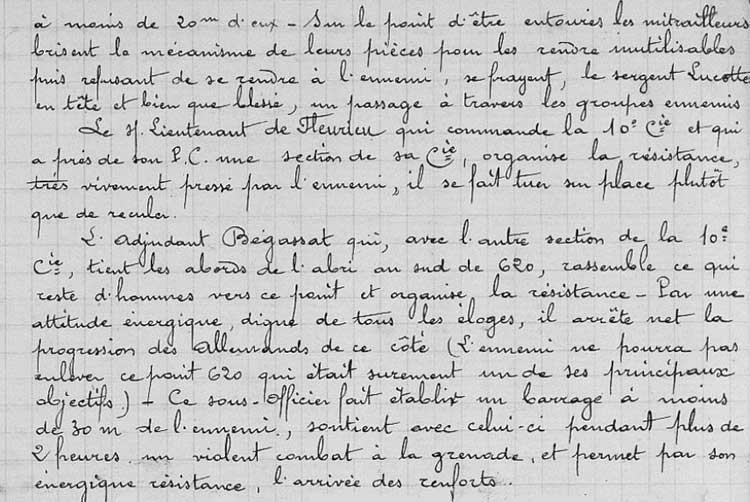 à moins de 20m d'eux - Sur le point d'être entourés les mitrailleurs
brisent le mécanisme de leurs pièces pour les rendre inutilisables
puis refusant de se rendre à l'ennemi, se frayent, le sergent Lucotte
en tête et bien que blessé, un passage à travers les groupes ennemis
Le s/ Lieutenant de Fleurieu qui commande la 10e Cie et qui
a près de son P.C. une section de sa Cie, organise la résistance,
très vivement pressé par l'ennemi, il se fait tuer sur place plutôt
que de reculer.
L'adjudant Bégassat qui, avec l'autre section de la 10e
Cie, tient les abords de l'abri au sud de 620, rassemble ce qui
reste d'hommes vers ce point et organise la résistance - Par une
attitude énergique, digne de tous les éloges, il arrête net la
progression des Allemands de ce côté (L'ennemi ne pourra pas
enlever ce point 620 qui était surement un de ses principaux
objectifs.) - Ce sous-officier fait établir un barrage à moins
de 30 m de l'ennemi, soutient avec celui-ci pendant plus de
2 heures un violent combat à la grenade, et permet par son
énergique résistance, l'arrivée des renforts..